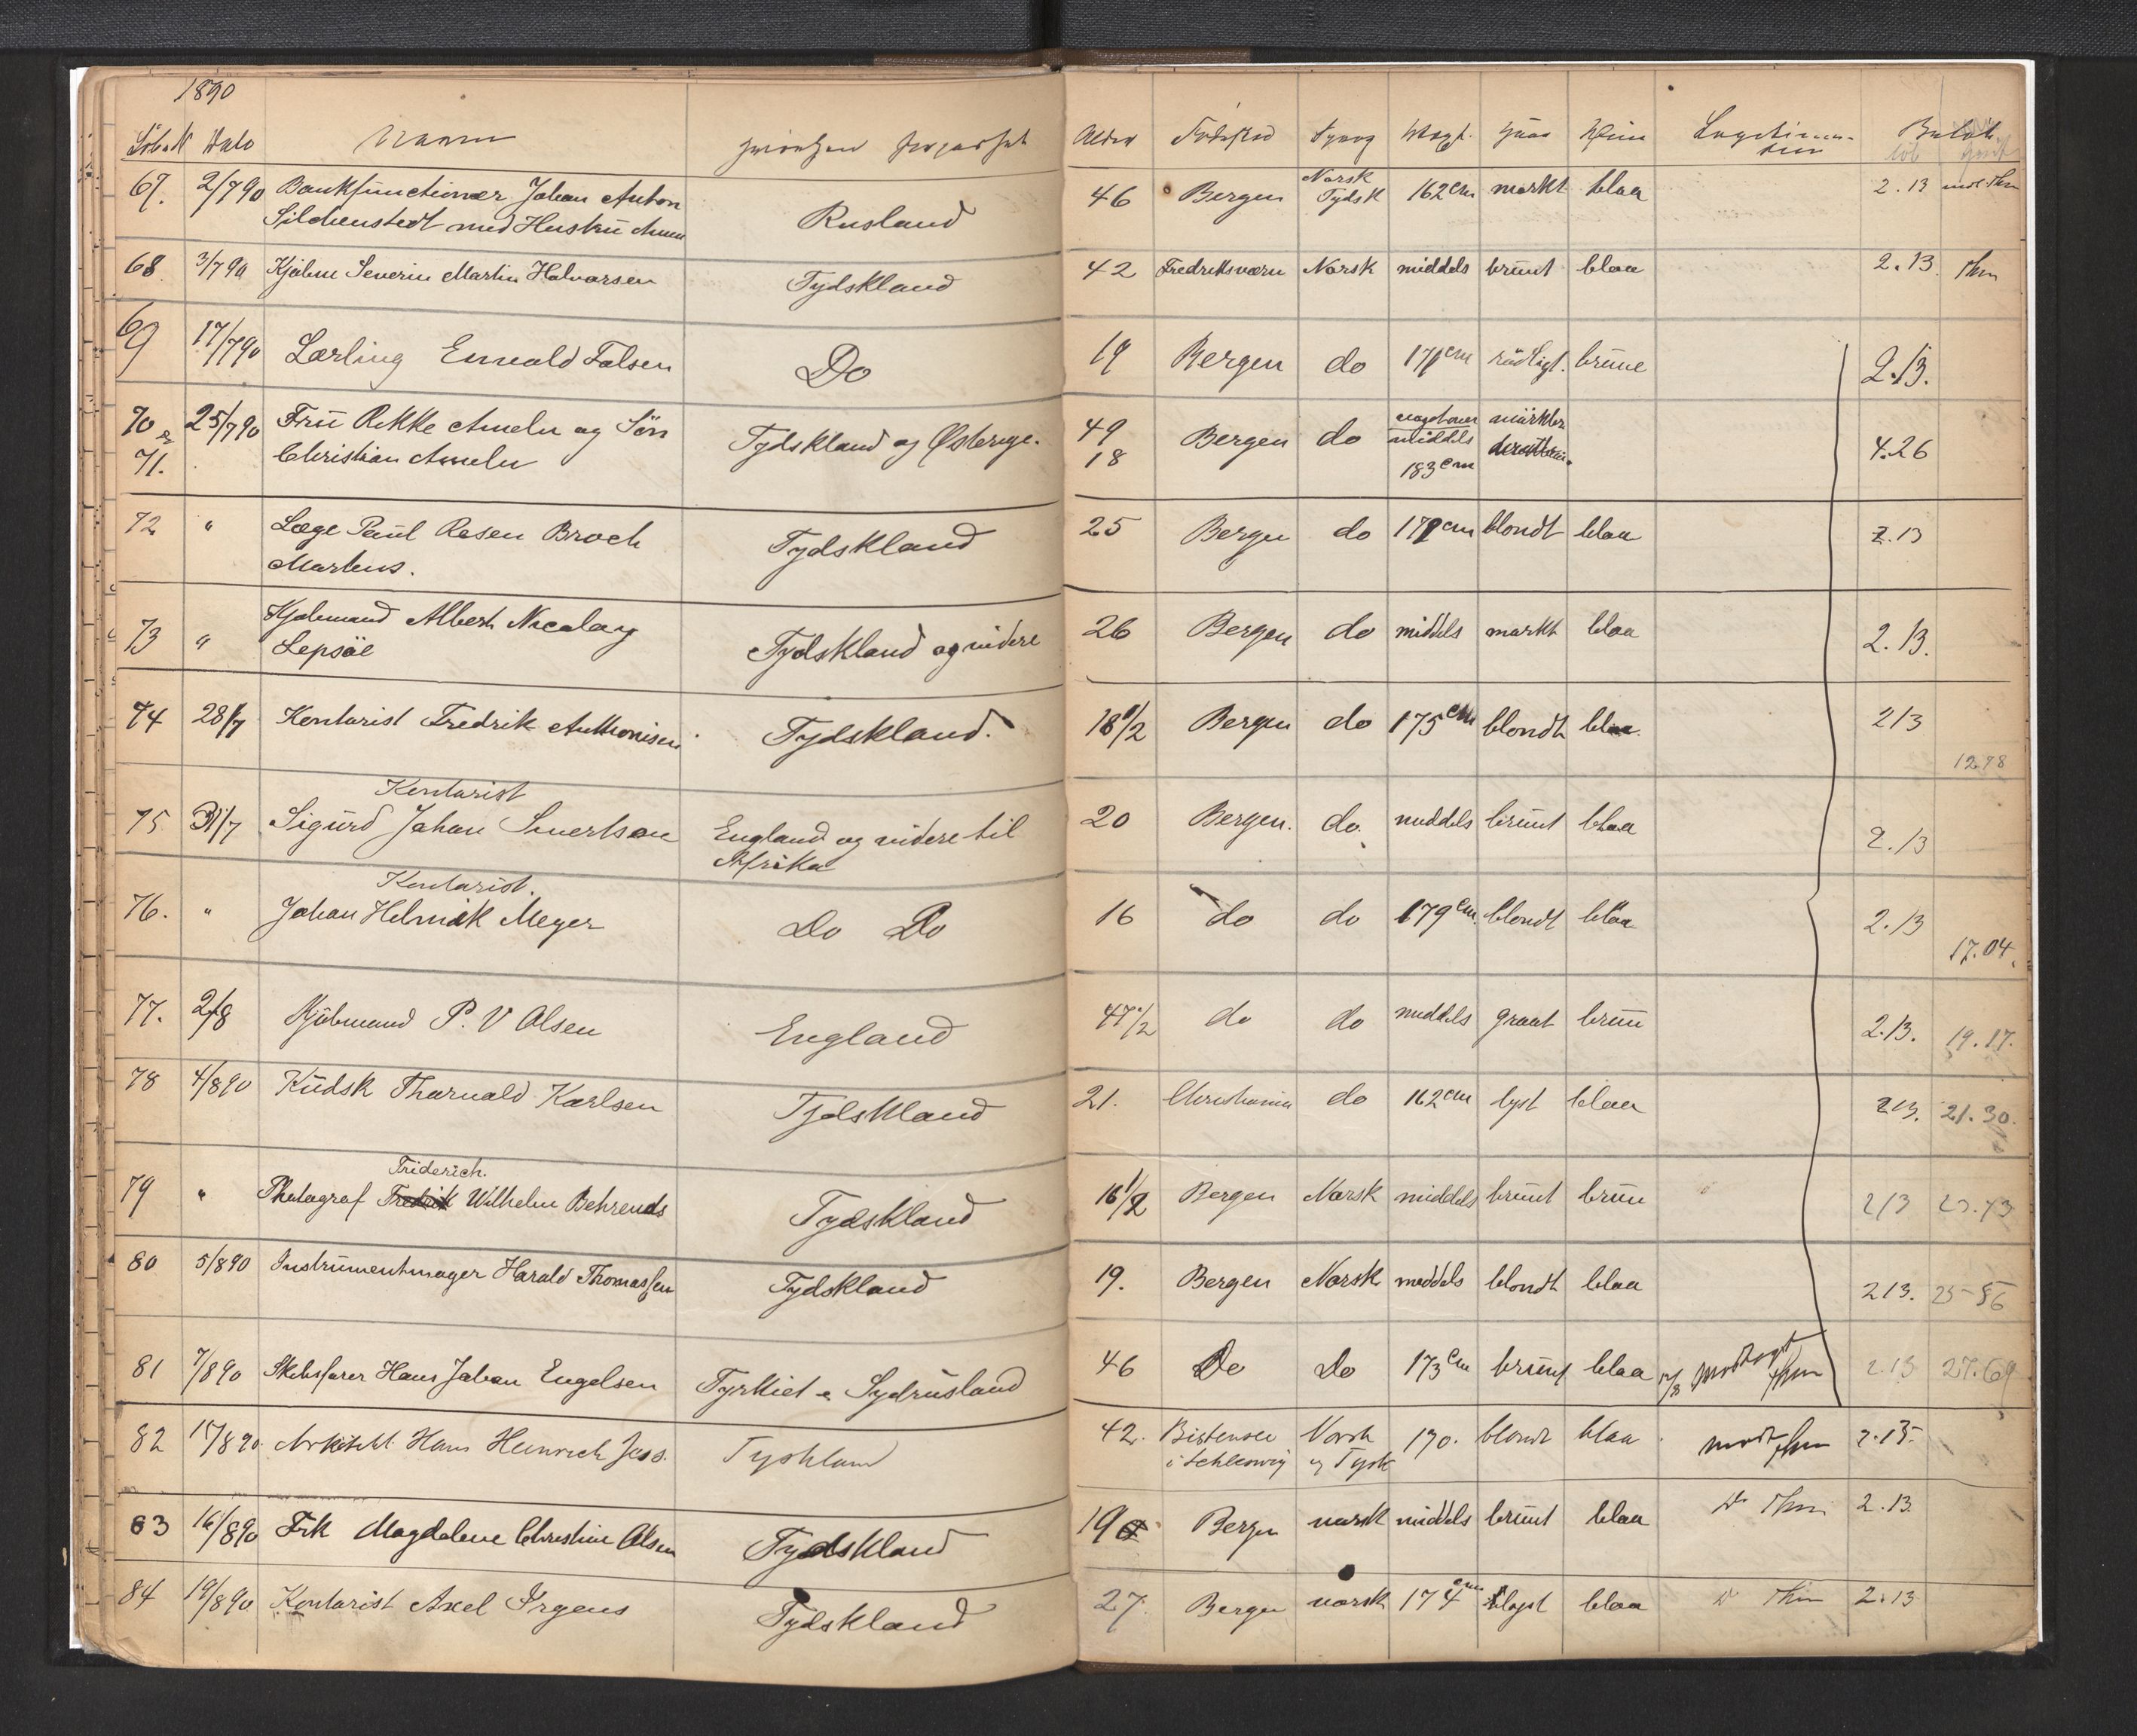 1890
Löbe N Dato Navn
Alder Fødested Sprog Haar
67. 2/7 90 Bankfunctionær Johan Anton
Sildenstedt med Hustru
Rusland
46 Bergen Norsk Tydsk 162 cm mørkt blaa 2.13
68 3/7 90 Kjøbm Severin Martin Halvorsen Tydskland
42 Fredriksværn Norsk middels brunt blaa 2.13.
69 17/7 90 Lærling Ewald Falsen Do
19 Bergen do 171 cm rødligt. brune 2.13.
70 & 25/7 90 Frü Rikke Ameln og Sön
71. Christian Ameln
Tydskland og Østerige.
49 Bergen do middels mörkt
18 183 cm 4.26
72 " Læge Paul Rosen Broch
Martens.
Tydskland
25 Bergen do 178 cm blondt blaa 2.13
73 " Kjøbmand Albert Nicolay
Lepsöe
Tydskland og videre
26 Bergen do middels mørkt blaa 2.13.
74 28/7 Kontorist Fredrik Anthonisen Tydskland.
18 1/2 Bergen do 175 cm blondt blaa. 213
12.78
Kontorist
75 31/7 Sigurd Johan England og videre til
Afrika
20 Bergen. do. middels brunt blaa 2.13
Kontorist.
76. " Johan Helmik Meyer Do Do
16 do do 179 cm. blondt blaa 2.13
17.04.
77. 2/8 Kjöbmand P. V Olsen England
47 1/2 do do middels graat brun 2.13. 19.17.
78 4/8 90 Kudsk Thorvald Karlsen Tydskland
21. Christiania do 162 cm lyst blaa 213. 21.30.
Friderich.
79 " Photograf Fredrik Wilhelm Behrends Tydskland
16 1/2 Bergen Norsk middels brunt brun 213 23.43
80 5/8 90 Instrumentmager Harald Thomassen Tydskland
19. Bergen Norsk middels blondt blaa 213. 25-56
81 7/8 90 Skibsfører Hans Johan Engelsen Tyrkiet & Sydrusland
46 Do Do 173 cm brunt blaa 2.13 27.69
82 15/8 90. Arkitekt Hans Heinrich Jess. Tyskland
42. Bistensee Norsk 170. blondt blaa 2.13.
i Schleswig og Tysk
83 16/8 90 Frk Magdalene Christine Olsen Tydskland
19 Bergen norsk middels brunt blaa 2.13.
84 19/8 90 Kontorist Axel Irgens Tydskland
27. Bergen norsk 174 cm lyst blaa 2.13